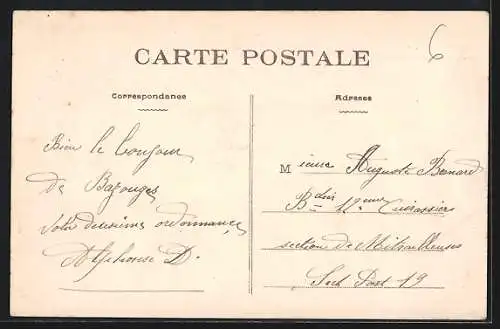 6
CARTE POSTALE
Correspondance
Adresse
Bien le bonjour
de Bazouges
Votre deuxième ordonnance
Alphonse D.
Monsieur Auguste Bernard
12eme Cuirassier
section de Mitrailleuses
Sect Post 19